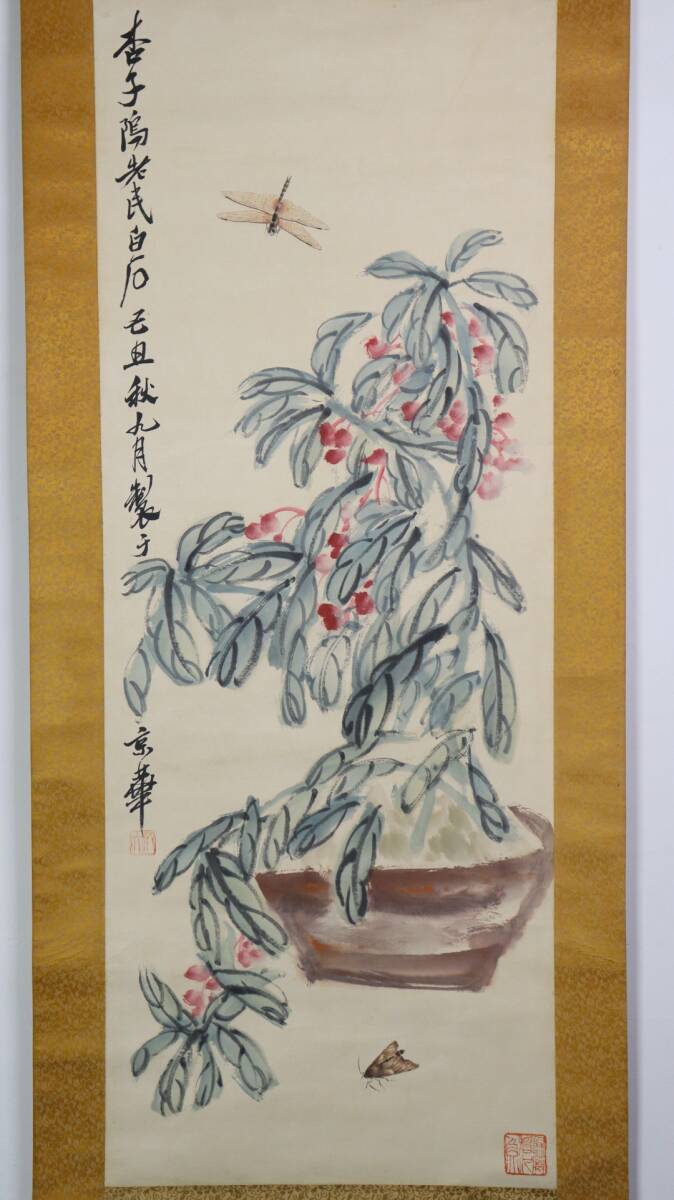 杏子隖老民白石己丑秋九月製于
京華